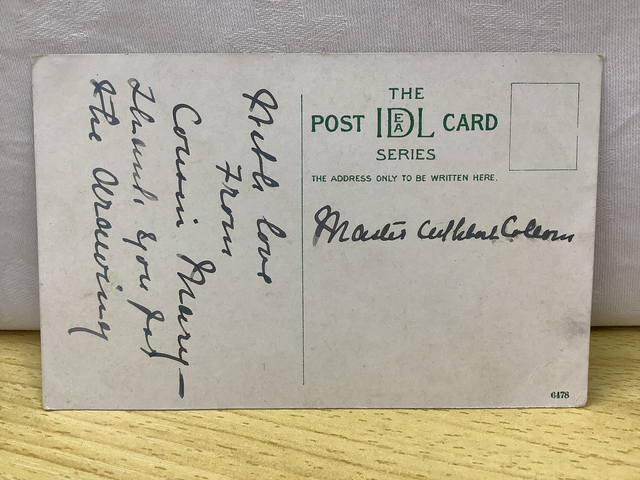 With love
From
Cousin Mary—
Thank you for
the drawing
THE
POST IDEAL CARD
SERIES
THE ADDRESS ONLY TO BE WRITTEN HERE.
Master
6178